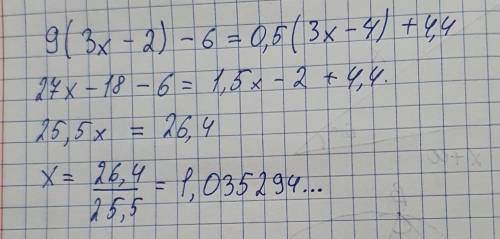 9(3x - 2) - 6 = 0,5(3x - 4) + 4,4
27x - 18 - 6 = 1,5x - 2 + 4,4.
25,5x = 26,4
x = 26,4/25,5 = 1,035294...